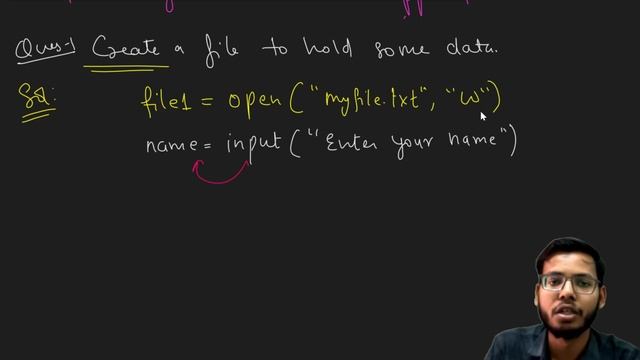 Ques-1 Create a file to hold some data.
Sol: file1 = open("myfile.txt", "w")
name = input("Enter your name")